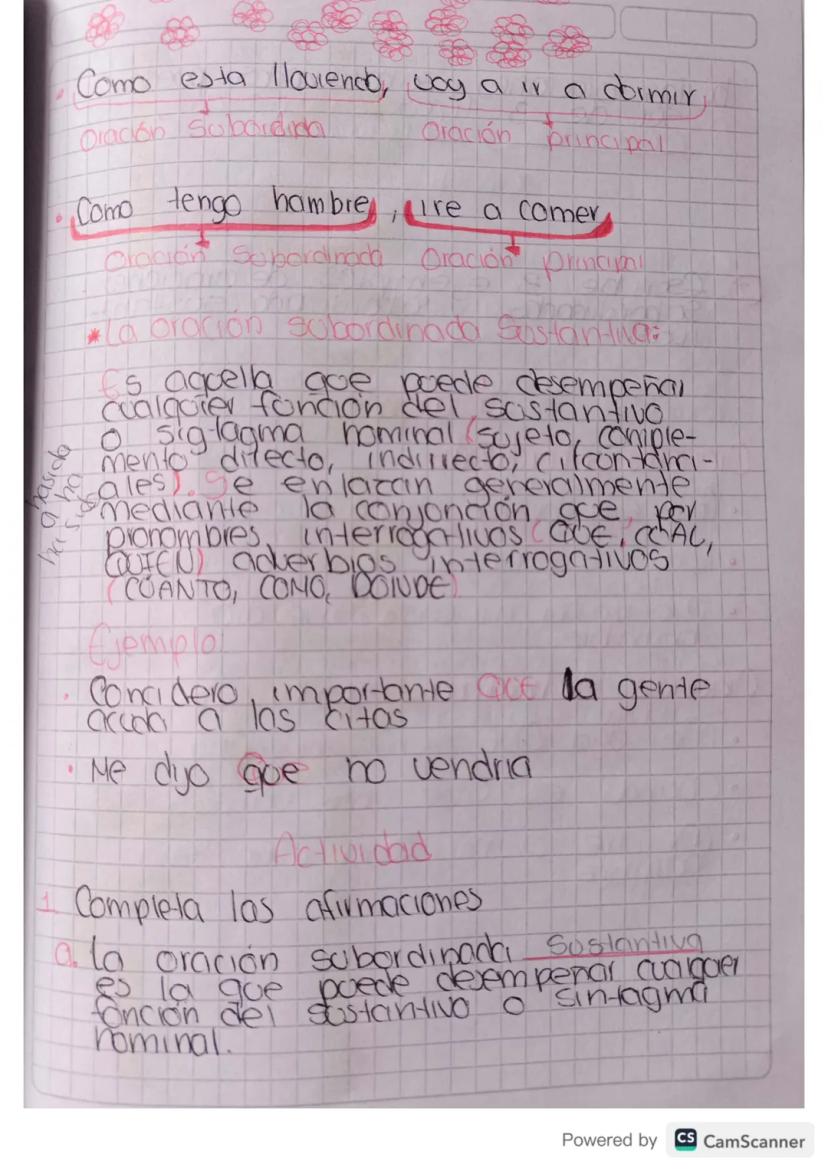 Como esta lloviendo, voy a ir a dormir
Oración Subordida Oración principal
Como tengo hambre, ire a comer
Oración Subordinada Oración principal
*La oración subordinada Sustantiva:
Es aquella que puede desempeñar
cualquier función del sustantivo
o sigtagma nominal (sujeto, comple-
mento directo, indirrecto, circontanci-
ales). Se enlazan generalmente
mediante la conjonción que, por
pronombres interrogativos (QUE, CUAL,
QUIEN) adverbios interrogativos
(CUANTO, COMO, DONDE)
ha sido
a ha
Ejemplo:
Concidero importante que la gente
acuda a las citas
Me dijo que no vendria
Actividad
1. Completa las afirmaciones
a. La oración subordinada Sustantiva
es la que puede desempeñar cualquier
función del sustantivo o sintagma
nominal.
Powered by CS CamScanner